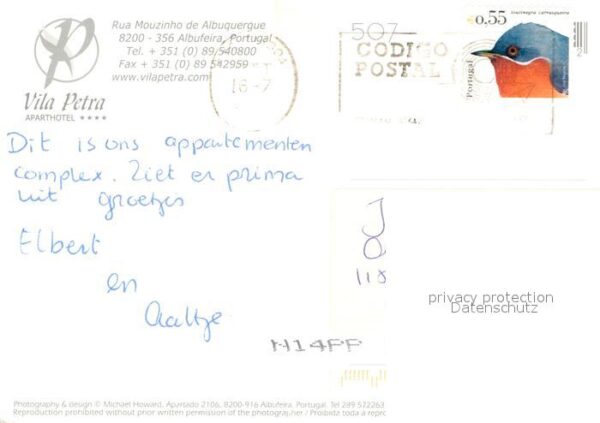 Rua Mouzinho de Albuquerque
8200 - 356 Albufeira, Portugal
Tel. + 351 (0) 89 540800
Fax + 351 (0) 89 542959
www.vilapetra.com
Vila Petra
APARTHOTEL ★★★★
16-7
507
CODIGO
POSTAL
€0,55
Portugal
Dit is ons appartementen
complex. Ziet er prima
uit groetjes
Elbert
en
Aaltje
118
privacy protection
Datenschutz
N14PP
Photography & design © Michael Howard. Apartado 2106, 8200-916 Albufeira. Portugal. Tel 289 572263
Reproduction prohibited without prior written permission of the photograp.her / Proibida toda a repro